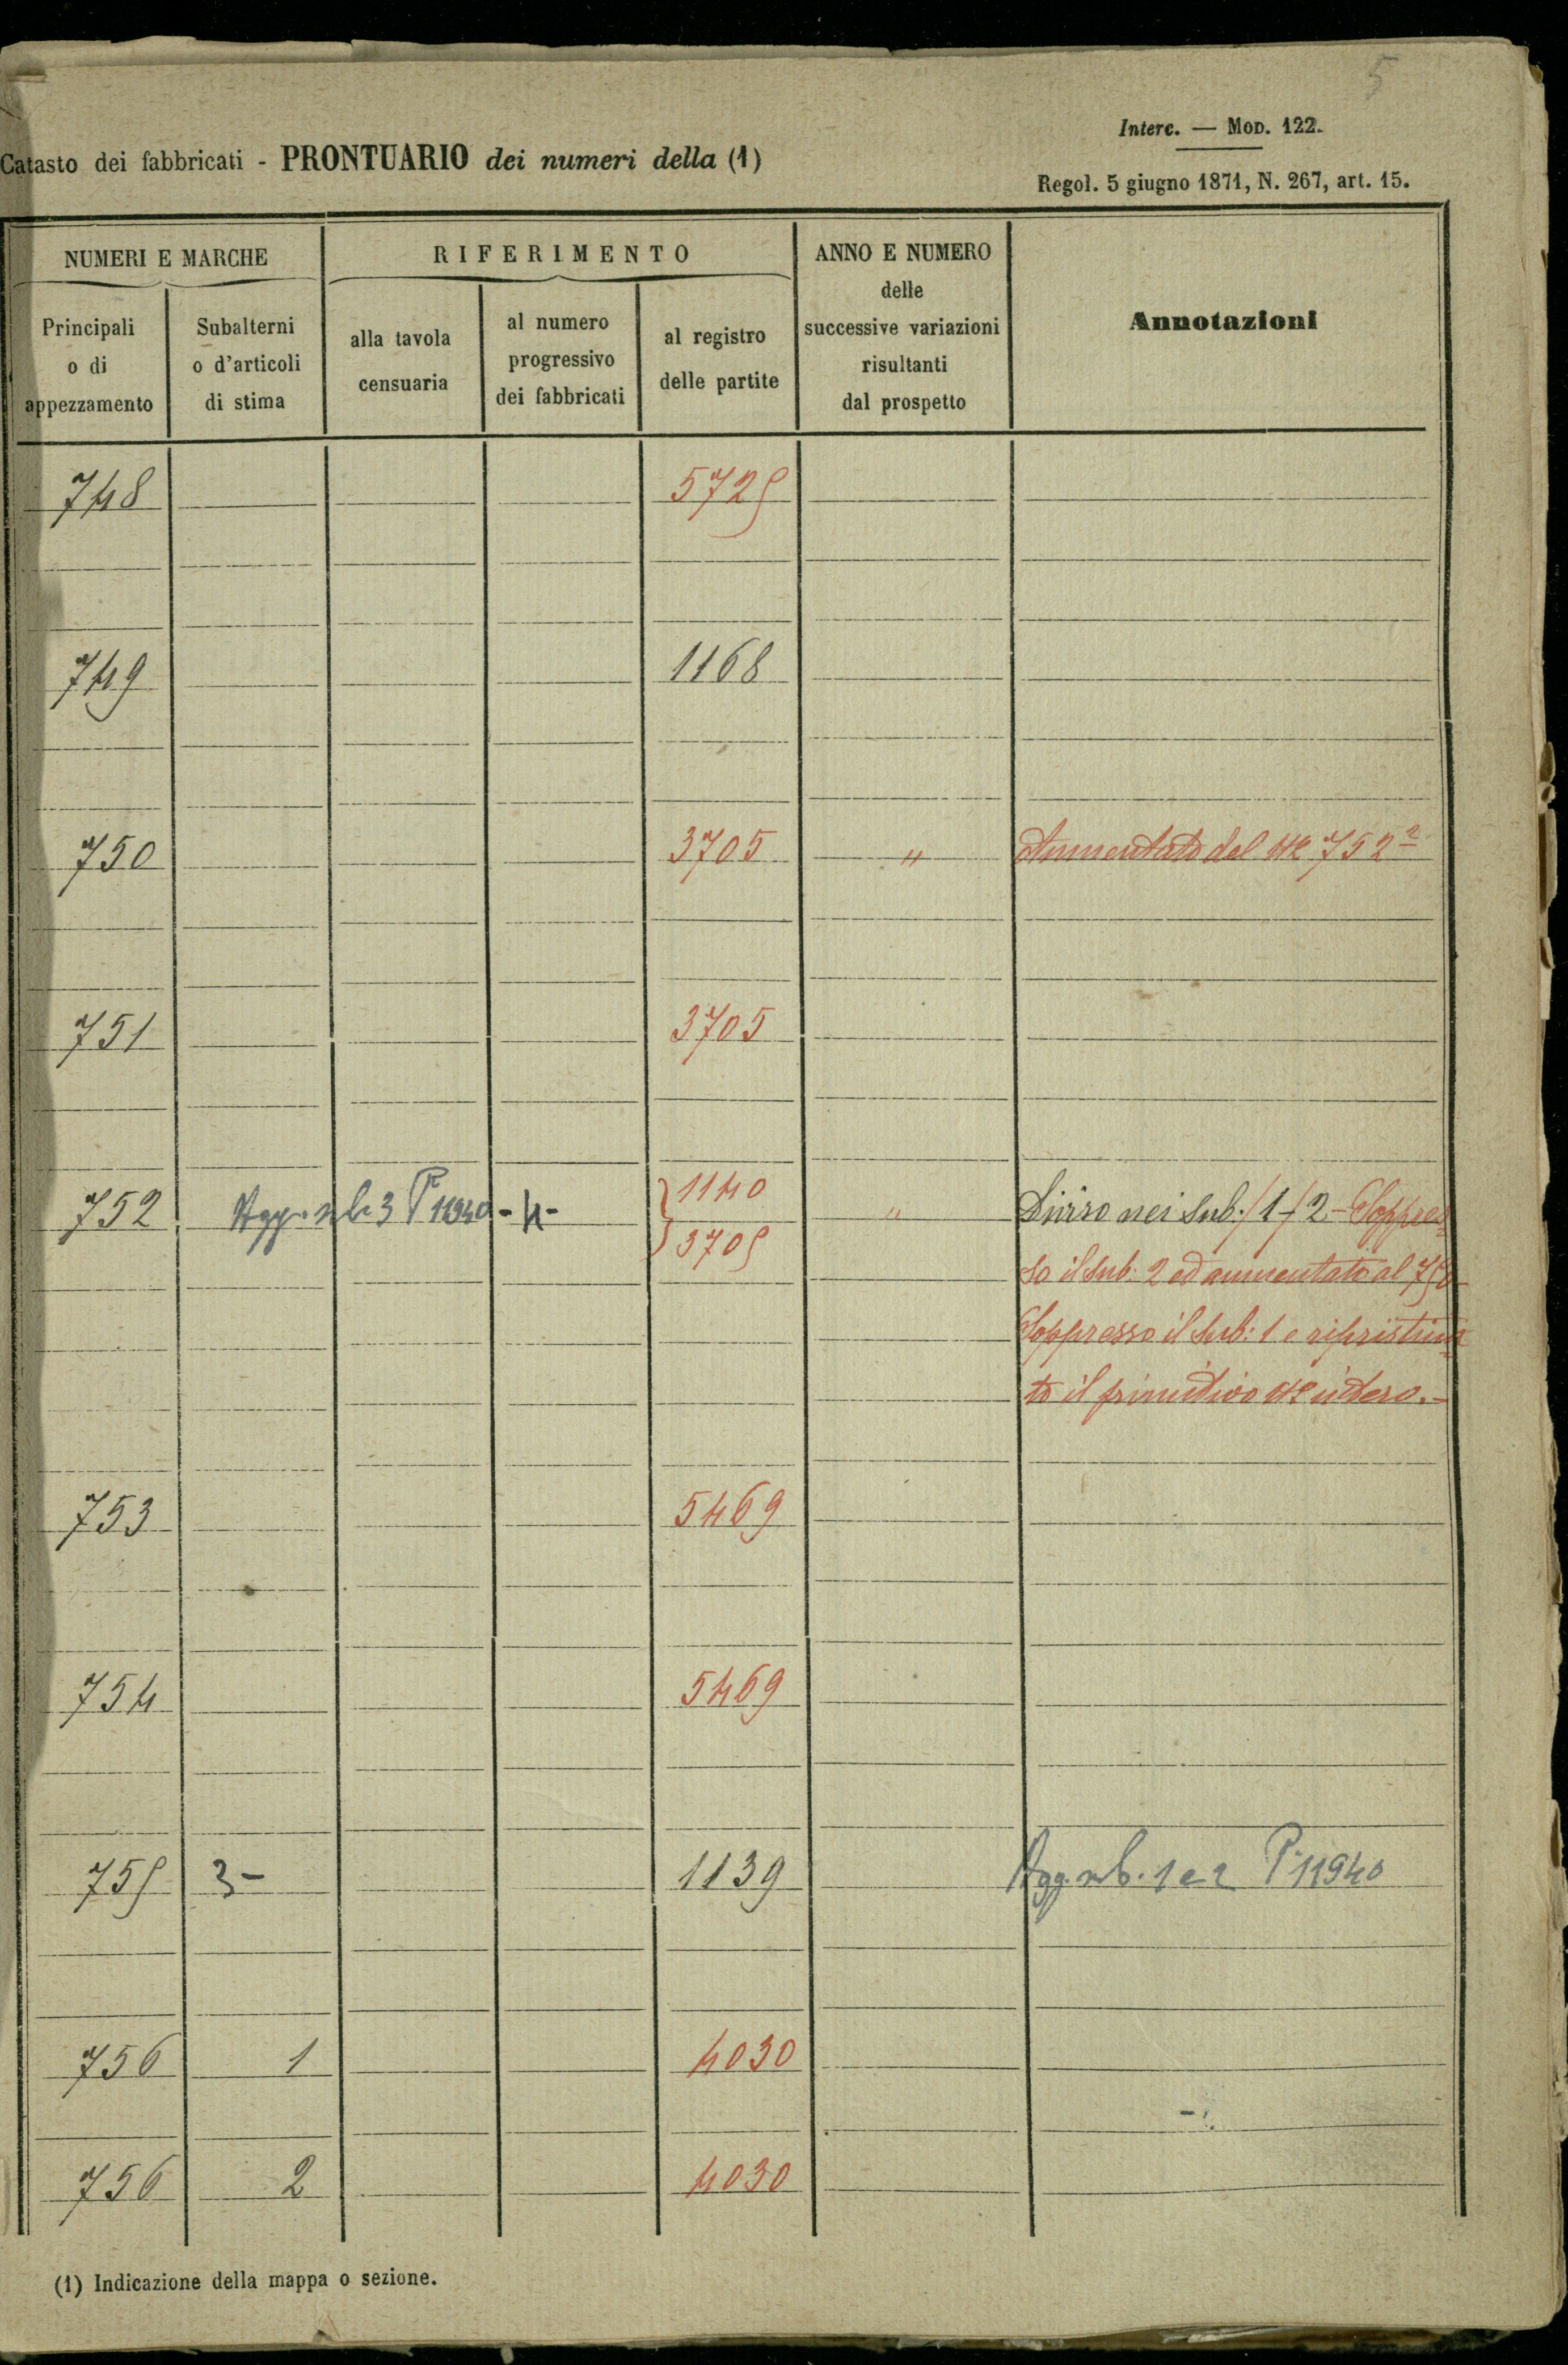 5
Interc. — Mod. 122.
Catasto dei fabbricati - PRONTUARIO dei numeri della (1)
Regol. 5 giugno 1871, N. 267, art. 15.
NUMERI E MARCHE
RIFERIMENTO
ANNO E NUMERO
delle
successive variazioni
risultanti
dal prospetto
Annotazioni
Principali
o di
appezzamento
Subalterni
o d'articoli
di stima
alla tavola
censuaria
al numero
progressivo
dei fabbricati
al registro
delle partite
748 5725
749 1168
750 3705 " Aumentato del N.º 752²
751 3705
752 Agg. sub. 3 Pª 11940 - 4 - 1140 " Diviso nei sub. / 1 - / 2 - Soppres
3705
so il sub. 2 ed aumentato al 750 -
Soppresso il sub: 1 e ripristina
to il primitivo N.º intero. -
753 5469
754 5469
755 3- 1139 Agg. sub. 1 e 2 P. 11940
756 1 4030
756 2 4030
(1) Indicazione della mappa o sezione.